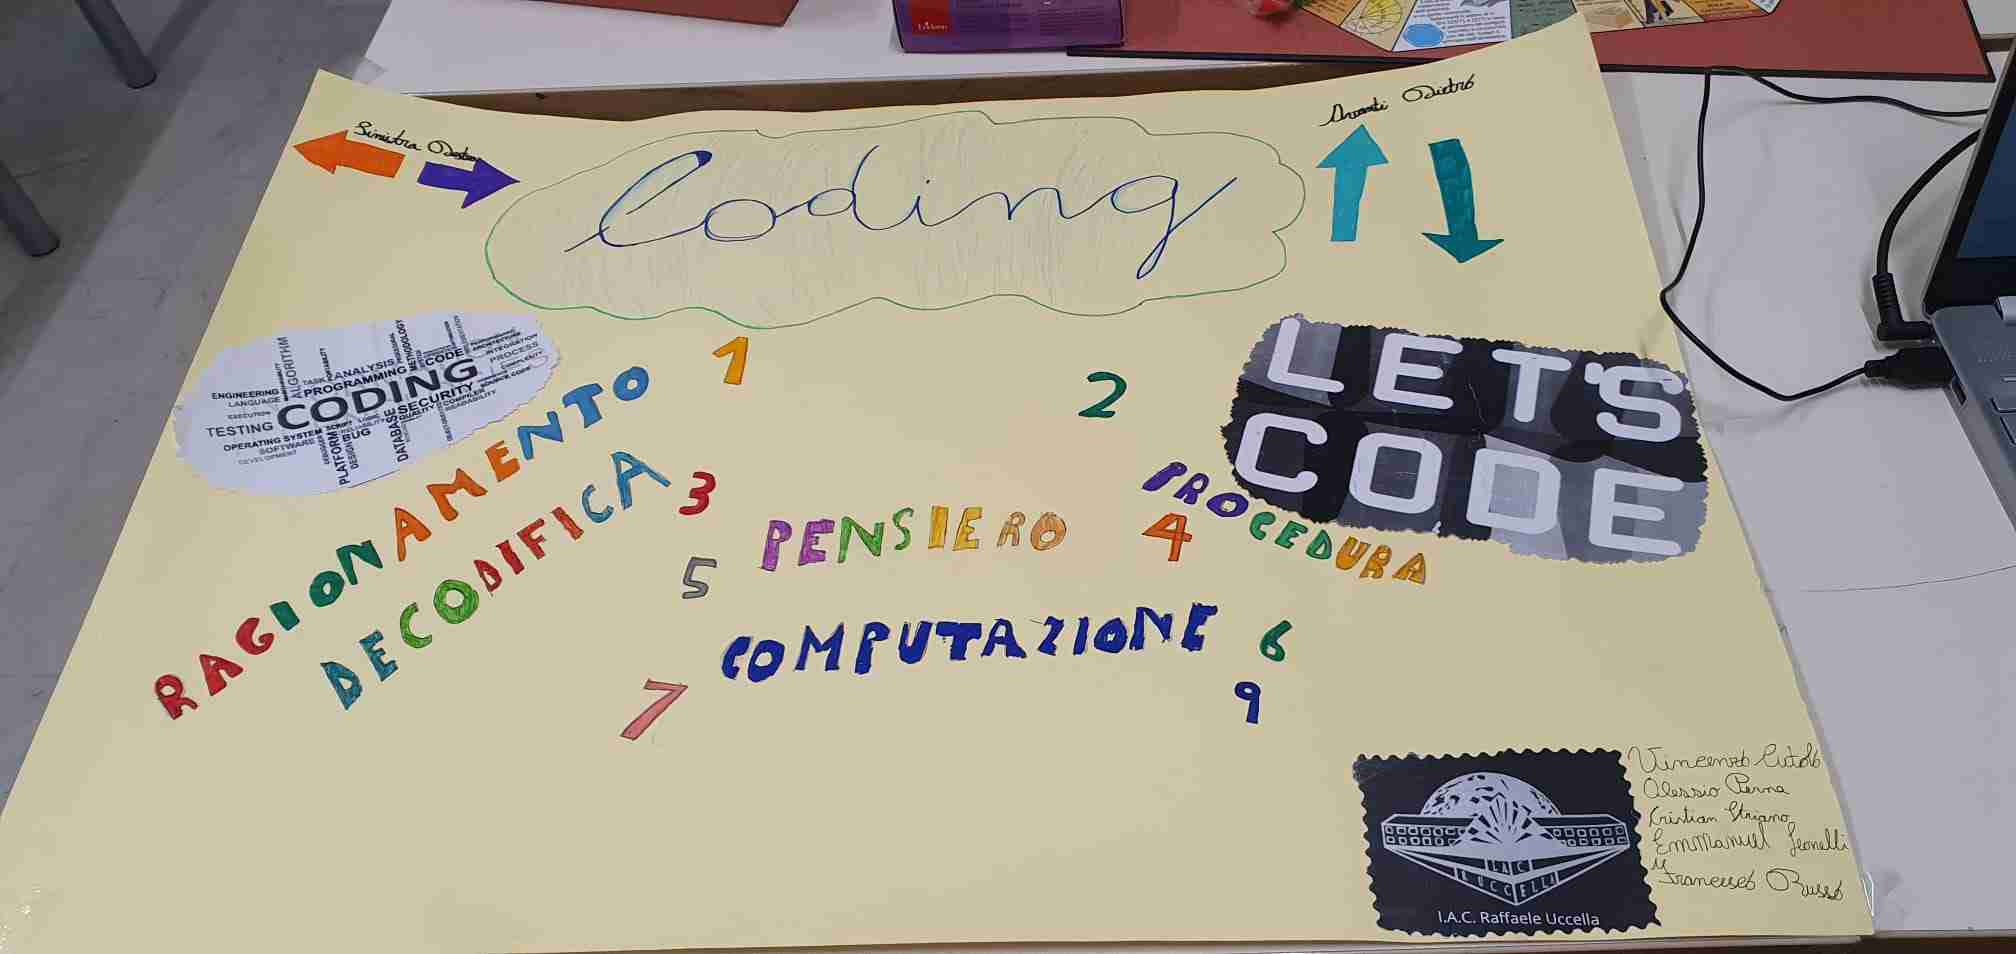 Sinistra Destra
Avanti Dietro
Coding
ENGINEERING
ALGORITHM
TASK
ANALYSIS
METHODOLOGY
CODE
ARCHITECTURE
INTEGRATION
PROCESS
COMPLEXITY
LANGUAGE
PROGRAMMING
EXECUTION
CODING
SOURCE CODE
TESTING
SECURITY
OPERATING SYSTEM
SCRIPT
LOGIC
QUALITY
COMPILER
READABILITY
SOFTWARE
BUG
DEVELOPMENT
PLATFORM
DESIGN
DATABASE
LET'S
CODE
1
2
RAGIONAMENTO
DECODIFICA
3
PENSIERO
4
PROCEDURA
5
COMPUTAZIONE
6
7
9
I.A.C.
UCCELLA
I.A.C. Raffaele Uccella
Vincenzo Cutolo
Alessio Perna
Cristian Striano
Emmanuel Leonelli
Francesco Russo